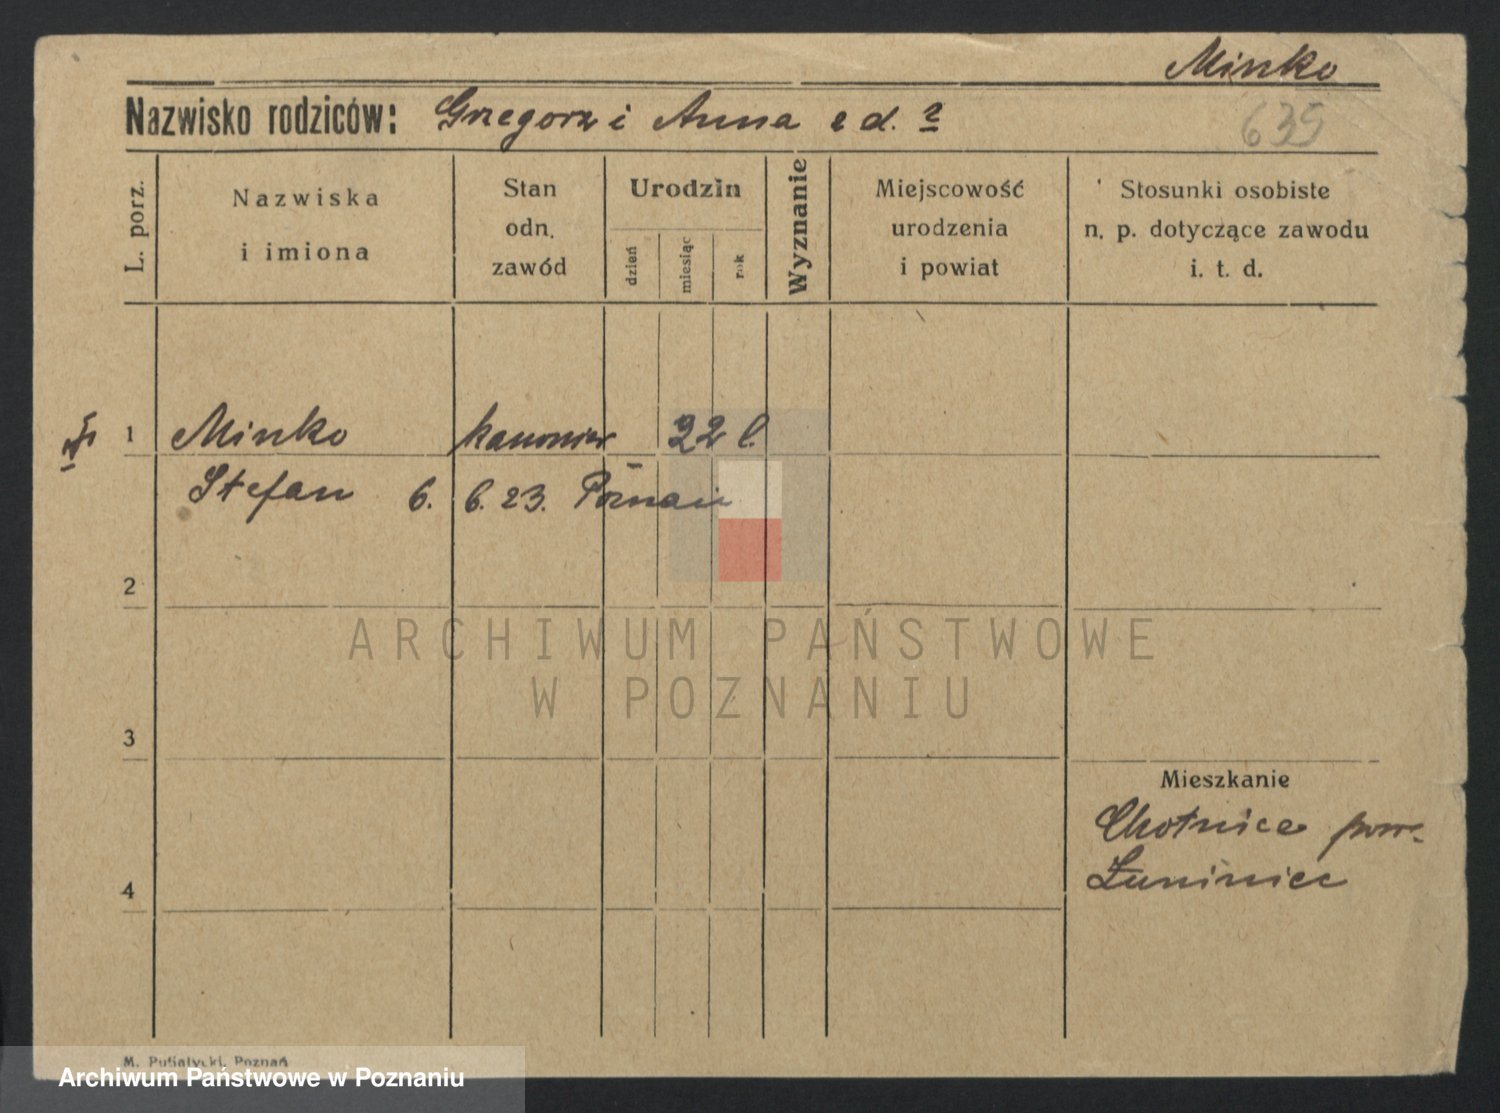 Minko
Nazwisko rodziców: Grzegorz i Anna e d. ?
635
L. porz.
Nazwiska
i imiona
Stan
odn.
zawód
Urodzin
dzień
miesiąc
rok
Wyznanie
Miejscowość
urodzenia
i powiat
Stosunki osobiste
n. p. dotyczące zawodu
i. t. d.
1 Minko kanonier 22 l.
Stefan 6. 6. 23. Poznań
2
ARCHIWUM PAŃSTWOWE
W POZNANIU
3
Mieszkanie
Chotnice pow.
Łuniniec
4
M. Pusiatycki, Poznań
Archiwum Państwowe w Poznaniu